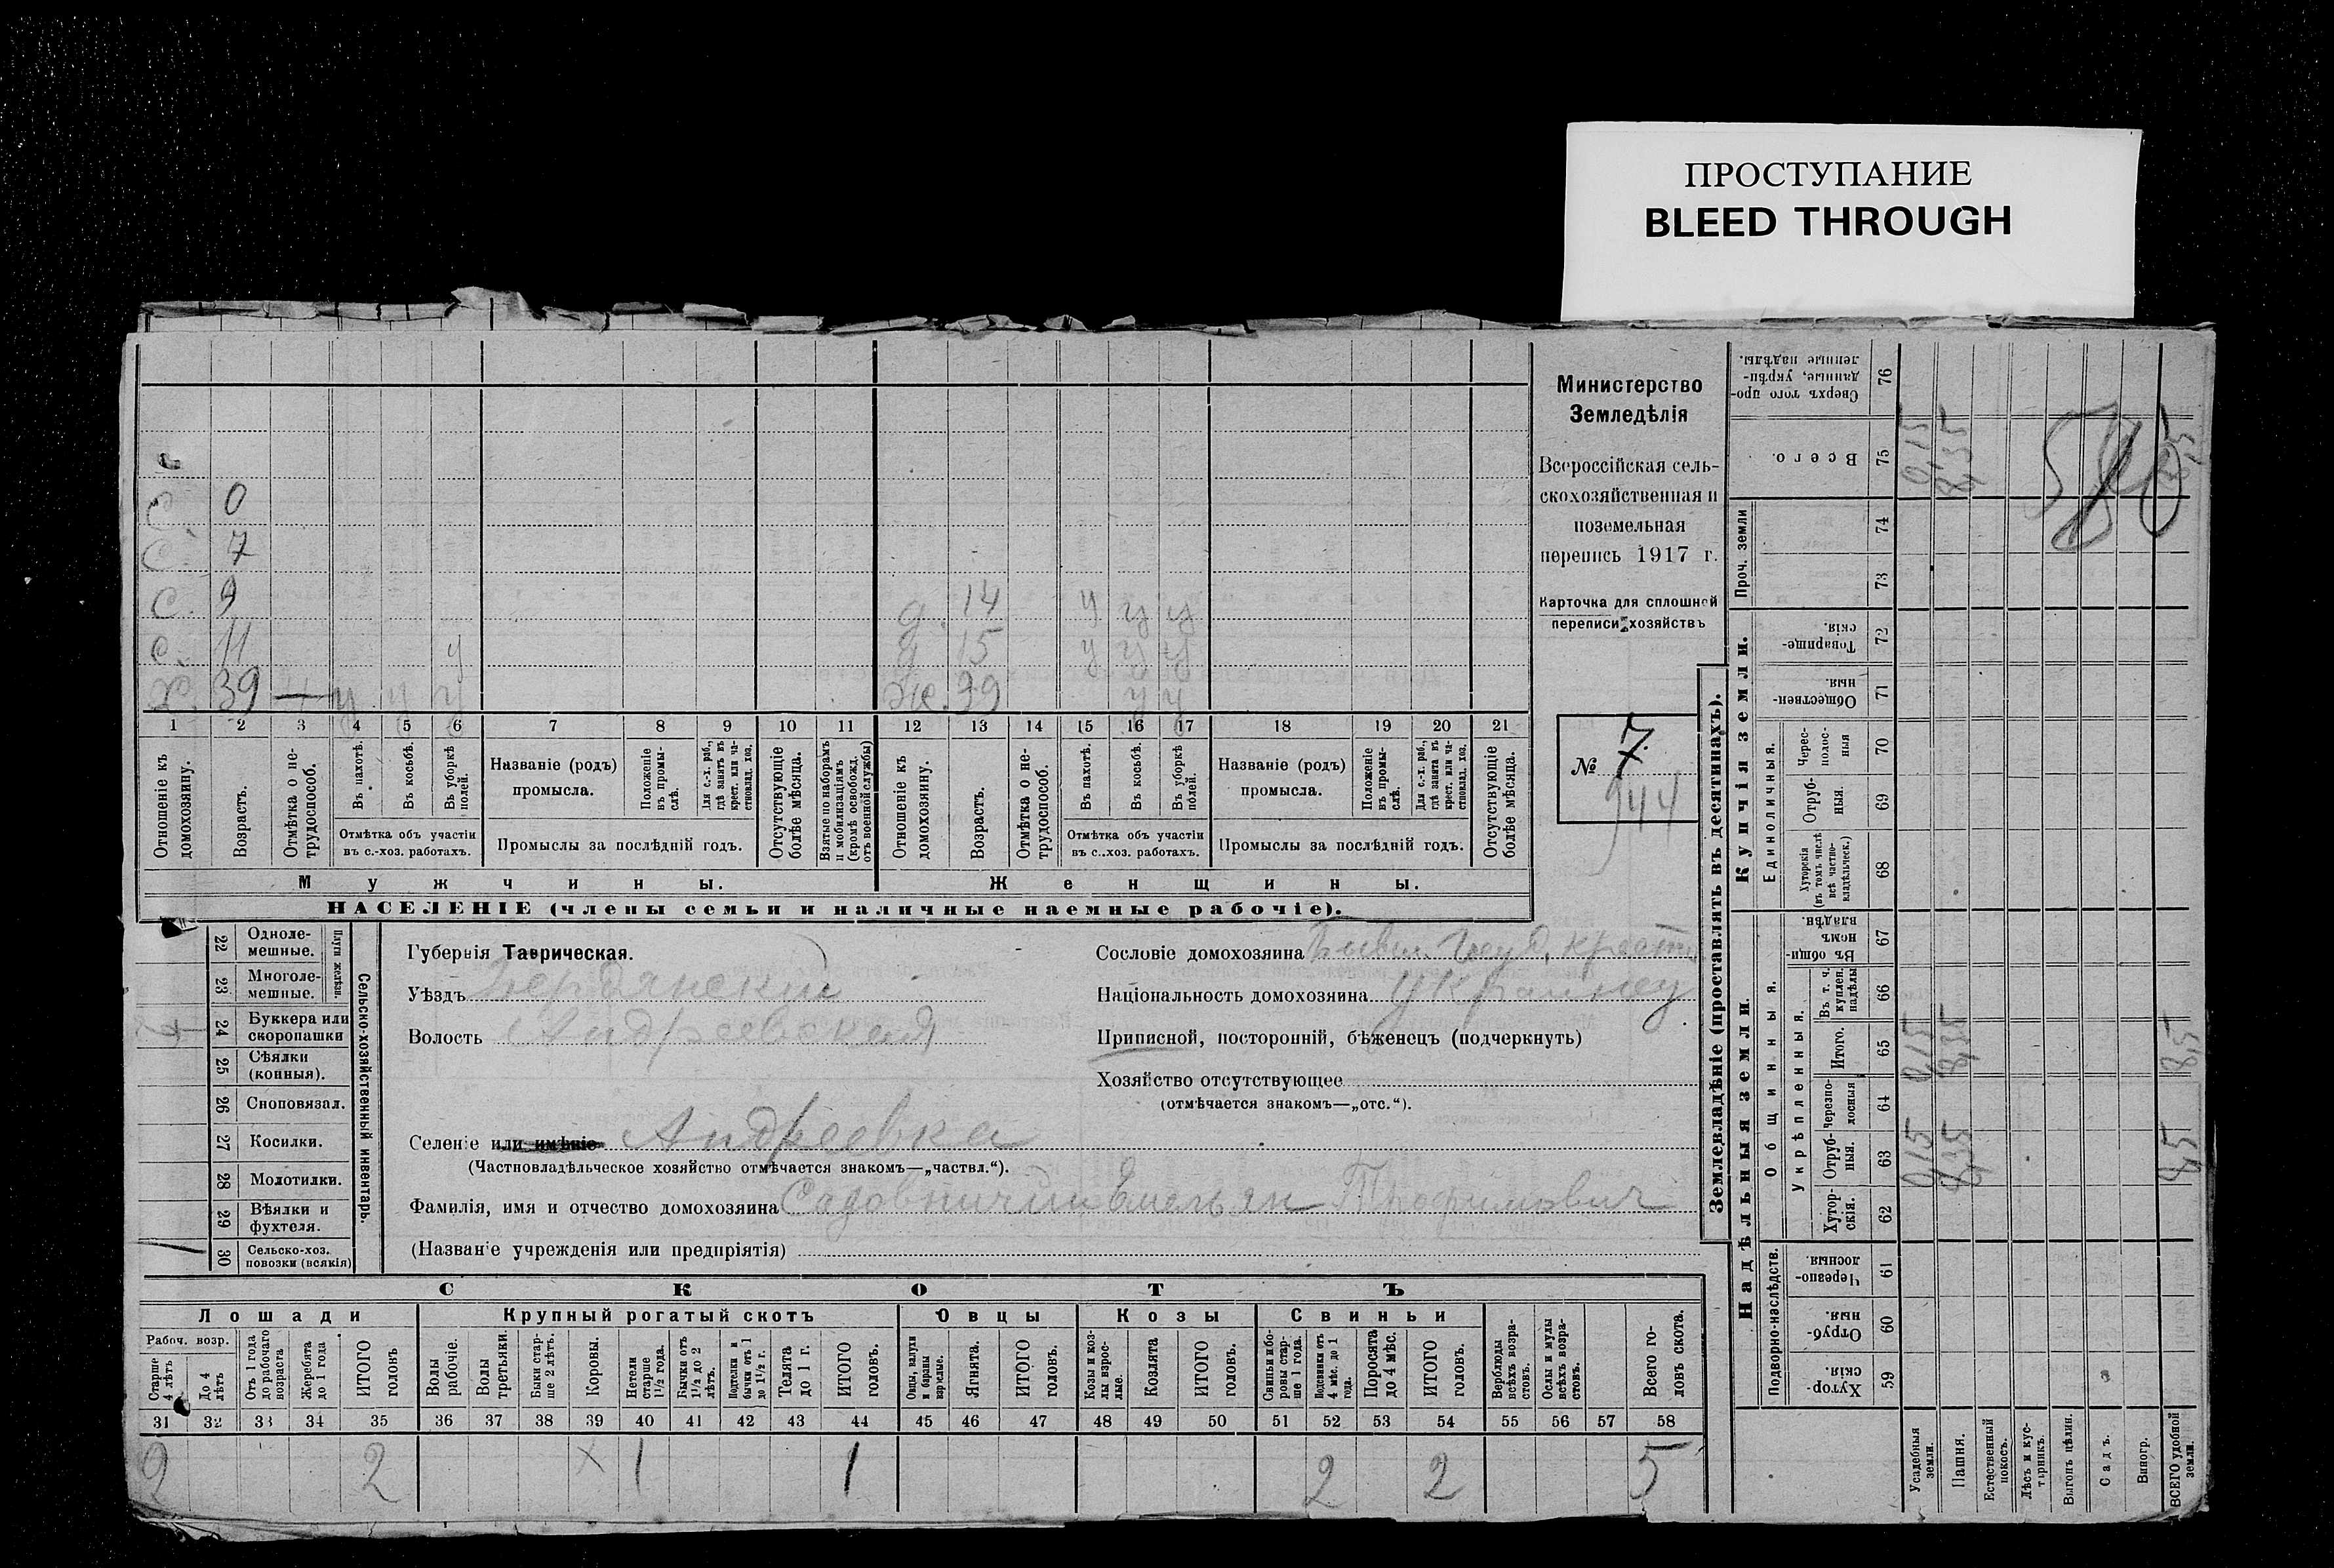 ПРОСТУПАНИЕ
BLEED THROUGH
с. 0
с. 7
с. 9
д. 14 у у у
с. 11 у
д 15 у у у
Х. 39 — у у у
ж. 39 у у
1 2 3 4 5 6 7 8 9 10 11 12 13 14 15 16 17 18 19 20 21
Отношеніе къ домохозяину.
Возрастъ.
Отмѣтка о не-трудоспособ.
Въ пахотѣ.
Въ косьбѣ.
Въ уборкѣ полей.
Отмѣтка объ участіи
въ с.-хоз. работахъ.
Названіе (родъ)
промысла.
Положеніе въ промы-слѣ.
Для с.-х. раб., гдѣ занятъ въ крест. или ча-стновлад. хоз.
Промыслы за послѣдній годъ.
Отсутствующіе болѣе мѣсяца.
Взятые по наборамъ и мобилизаціямъ (кромѣ освобожд. отъ военной службы)
Отношеніе къ домохозяину.
Возрастъ.
Отмѣтка о не-трудоспособ.
Въ пахотѣ.
Въ косьбѣ.
Въ уборкѣ полей.
Отмѣтка объ участіи
въ с.-хоз. работахъ.
Названіе (родъ)
промысла.
Положеніе въ промы-слѣ.
Для с.-х. раб., гдѣ занята въ крест. или ча-стновлад. хоз.
Промыслы за послѣдній годъ.
Отсутствующіе болѣе мѣсяца.
Мужчины.
Женщины.
НАСЕЛЕНІЕ (члены семьи и наличные наемные рабочіе).
Министерство
Земледѣлія
Всероссійская сель-
скохозяйственная и
поземельная
перепись 1917 г.
Карточка для сплошной
переписи хозяйствъ
№ 7
944
22 Одноле-мешные.
23 Многоле-мешные.
Плуги желѣзн.
24 Буккера или скоропашки
25 Сѣялки (конныя).
26 Сноповязал.
27 Косилки.
28 Молотилки.
29 Вѣялки и фухтеля.
30 Сельско-хоз. повозки (всякія)
Сельско-хозяйственный инвентарь.
Губернія Таврическая.
Уѣздъ Бердянский
Волость Андреевская
Селеніе или имѣніе Андреевка
(Частновладѣльческое хозяйство отмѣчается знакомъ—„частвл.“).
Фамилія, имя и отчество домохозяина Садовничий Емельян Трофимович
(Названіе учрежденія или предпріятія)
Сословіе домохозяина Бывш. Госуд. крест.
Національность домохозяина Украинец
Приписной, посторонній, бѣженецъ (подчеркнуть)
Хозяйство отсутствующее
(отмѣчается знакомъ—„отс.“).
СКОТЪ
Лошади
Крупный рогатый скотъ
Овцы
Козы
Свиньи
Рабоч. возр.
Старше 4 лѣтъ
До 4 лѣтъ
Отъ 1 года до рабочаго возраста
Жеребята до 1 года
ИТОГО головъ
Волы рабочіе.
Волы третьяки.
Быки стар-ше 2 лѣтъ.
Коровы.
Нетели старше 1½ года.
Бычки отъ 1½ до 2 лѣтъ.
Подтелки и бычки отъ 1 до 1½ г.
Телята до 1 г.
ИТОГО головъ.
Овцы, валухи и бараны взрослые.
Ягнята.
ИТОГО головъ.
Козы и коз-лы взрос-лые.
Козлята
ИТОГО головъ.
Свиньи и бо-ровы стар-ше 1 года.
Подсвинки отъ 4 мѣс. до 1 года.
Поросята до 4 мѣс.
ИТОГО головъ.
Верблюды всѣхъ возра-стовъ.
Ослы и мулы всѣхъ возра-стовъ.
Всего го-ловъ скота.
31 32 33 34 35 36 37 38 39 40 41 42 43 44 45 46 47 48 49 50 51 52 53 54 55 56 57 58
2 2 х 1 1 2 2 5
Землевладѣніе (проставлять въ десятинахъ).
Купчія земли.
Надѣльныя земли.
Сверхъ того про-данные, укрѣп-ленные надѣлы. 76
Всего. 75 0,15 8,35 8,5
Проч. земли
74
73
Товарище-скія. 72
Обществен-ныя. 71
Единоличныя.
Черес-полос-ныя 70
Отруб-ныя. 69
Хуторскія (въ томъ числѣ всѣ частно-владѣльческ.) 68
Общинныя.
Въ общи-номъ владѣн. 67
Укрѣпленныя.
Въ т. ч. куплен. надѣлы 66
Итого. 65 0,15 8,35 8,5
Черезпо-лосныя 64
Отруб-ныя. 63 0,15 8,35 8,5
Хутор-скія. 62
Подворно-наслѣдств.
Черезпо-лосныя 61
Отруб-ныя. 60
Хутор-скія. 59
Усадебныя земли.
Пашня.
Естественный покосъ.
Лѣсъ и кус-тарникъ.
Выгонъ цѣлин.
Садъ.
Виногр.
ВСЕГО удобной земли.